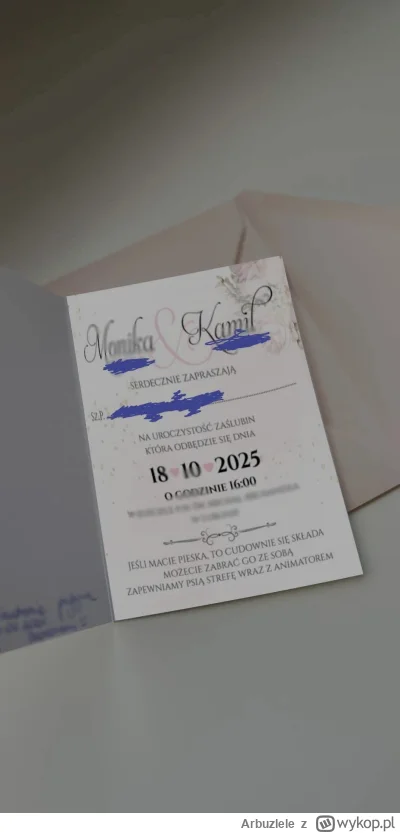 Monika & Kamil
SERDECZNIE ZAPRASZAJĄ
SZ.P.
NA UROCZYSTOŚĆ ZAŚLUBIN
KTÓRA ODBĘDZIE SIĘ DNIA
18 ♥ 10 ♥ 2025
O GODZINIE 16:00
JEŚLI MACIE PIESKA, TO CUDOWNIE SIĘ SKŁADA
MOŻECIE ZABRAĆ GO ZE SOBĄ
ZAPEWNIAMY PSIĄ STREFĘ WRAZ Z ANIMATOREM
Arbuzlele z wykop.pl